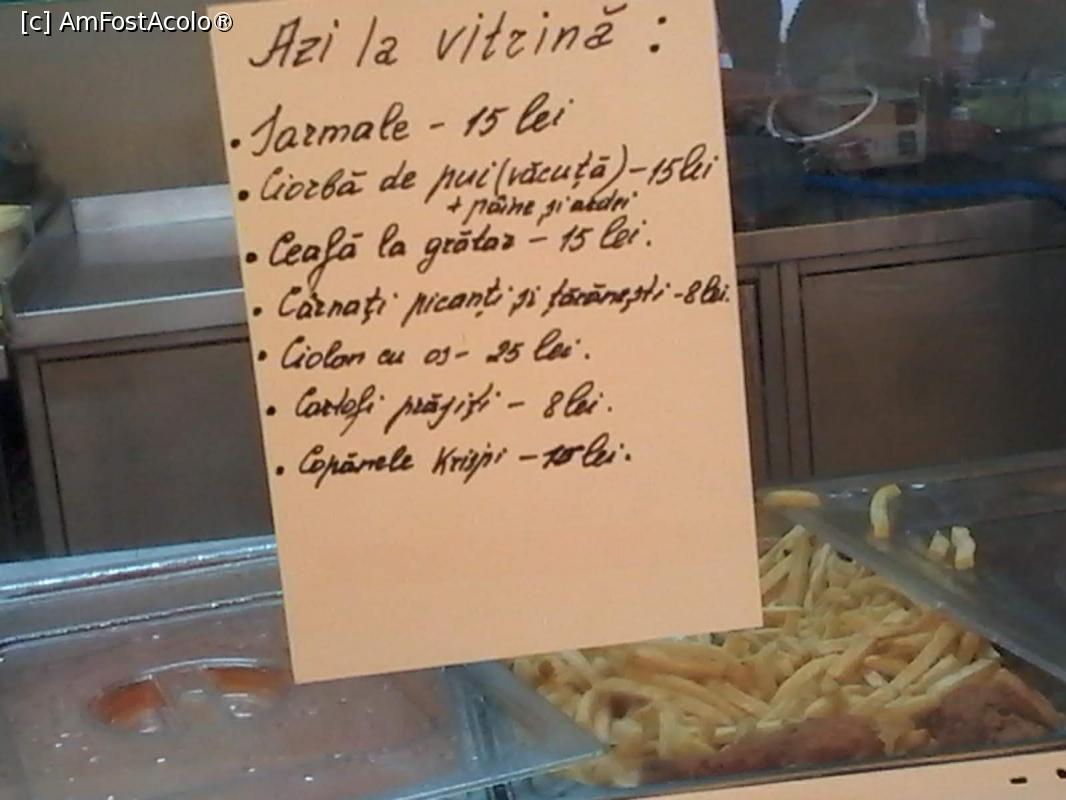 [c] AmFostAcolo®
Azi la vitrină :
• Sarmale - 15 lei
• Ciorbă de pui (văcuță) - 15 lei
+ pâine și ardei
• Ceafă la grătar - 15 lei.
• Cârnați picanți și țărănești - 8 lei.
• Ciolan cu os - 25 lei.
• Cartofi prăjiți - 8 lei.
• Copănele Krispi - lei.